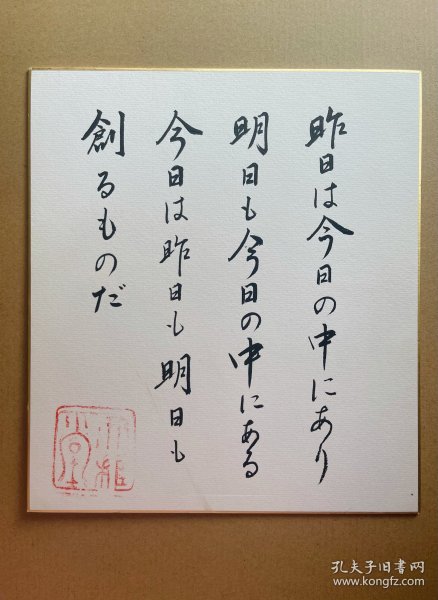 昨日は今日の中にあり
明日も今日の中にある
今日は昨日も明日も
創るものだ
孔夫子旧书网
www.kongfz.com